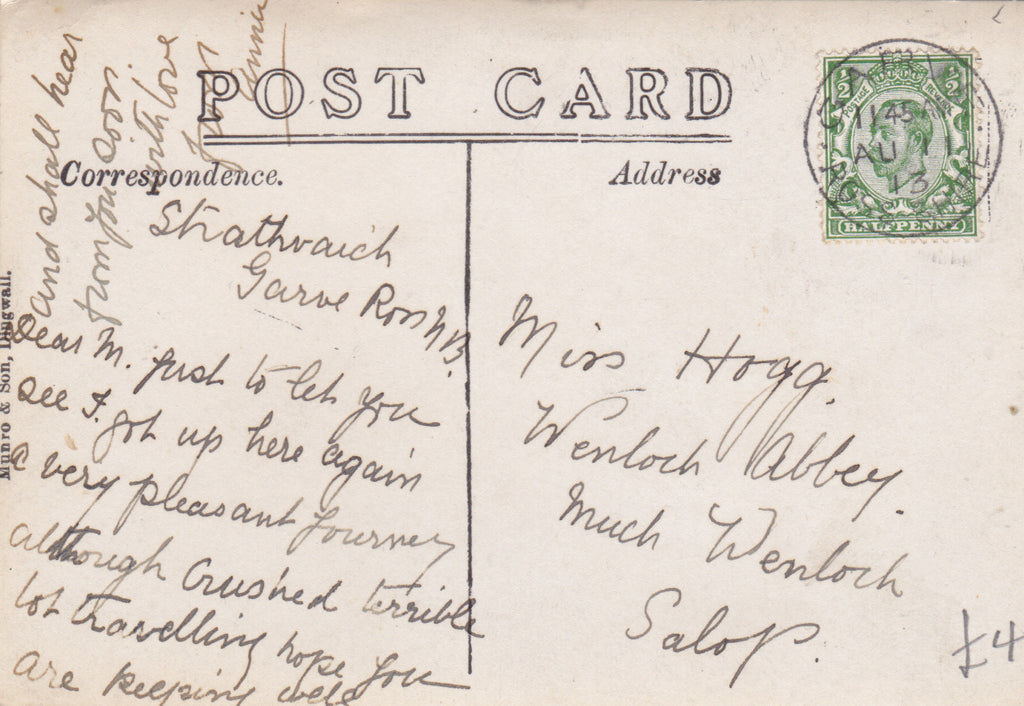 POST CARD
Correspondence.
Address
Strathvaich
Garve Ross N.B.
Dear M. Just to let you
see I got up here again
a very pleasant Journey
although Crushed terrible
lot travelling hope you
are keeping well
and shall hear
from you soon
with love
from
Annie
Miss Hogg.
Wenloch Abbey.
Much Wenloch
Salop.
GARVE
11 45
AU 11
13
ROSS-SHIRE
POSTAGE
REVENUE
½
½
HALFPENNY
Munro & Son, Dingwall.
£4